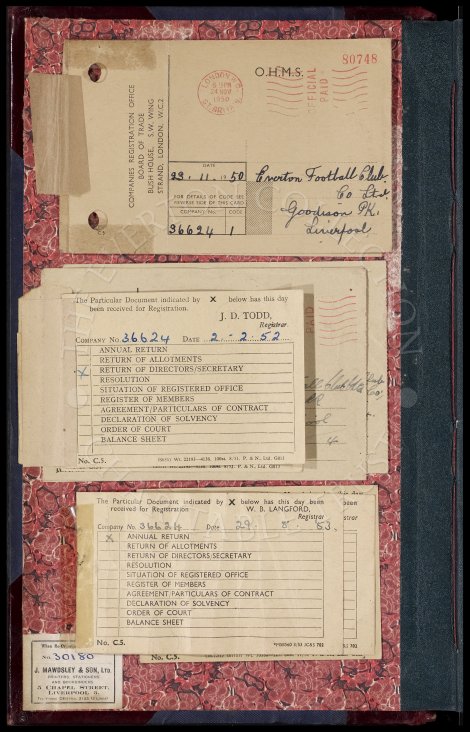 COMPANIES REGISTRATION OFFICE
BOARD OF TRADE
BUSH HOUSE, S.W. WING
STRAND, LONDON, W.C.2
C.5
LONDON
24 NOV
1950
O.H.M.S.
80748
OFFICIAL
PAID
DATE
23.11.1950
FOR DETAILS OF CODE SEE
REVERSE SIDE OF THIS CARD
COMPANY No.
CODE
36624
1
Everton Football Club
Co Ltd.
Goodison Pk.
Liverpool
PAID
The Particular Document indicated by X below has this day
been received for Registration.
J. D. TODD,
Registrar.
COMPANY No. 36624 DATE 2-2.52
ANNUAL RETURN
RETURN OF ALLOTMENTS
X RETURN OF DIRECTORS/SECRETARY
RESOLUTION
SITUATION OF REGISTERED OFFICE
REGISTER OF MEMBERS
AGREEMENT/PARTICULARS OF CONTRACT
DECLARATION OF SOLVENCY
ORDER OF COURT
BALANCE SHEET
No. C.5.
The Particular Document indicated by X below has this day been
received for Registration
W. B. LANGFORD,
Registrar
Company No. 36624 Date 29. 8. 53.
X ANNUAL RETURN
RETURN OF ALLOTMENTS
RETURN OF DIRECTORS/SECRETARY
RESOLUTION
SITUATION OF REGISTERED OFFICE
REGISTER OF MEMBERS
AGREEMENT/PARTICULARS OF CONTRACT
DECLARATION OF SOLVENCY
ORDER OF COURT
BALANCE SHEET
No. C.5.
No. C.5.
No. 30180
J. MAWDSLEY & SON, LTD.
PRINTERS, STATIONERS
AND BOOKBINDERS
5 CHAPEL STREET,
LIVERPOOL 3.